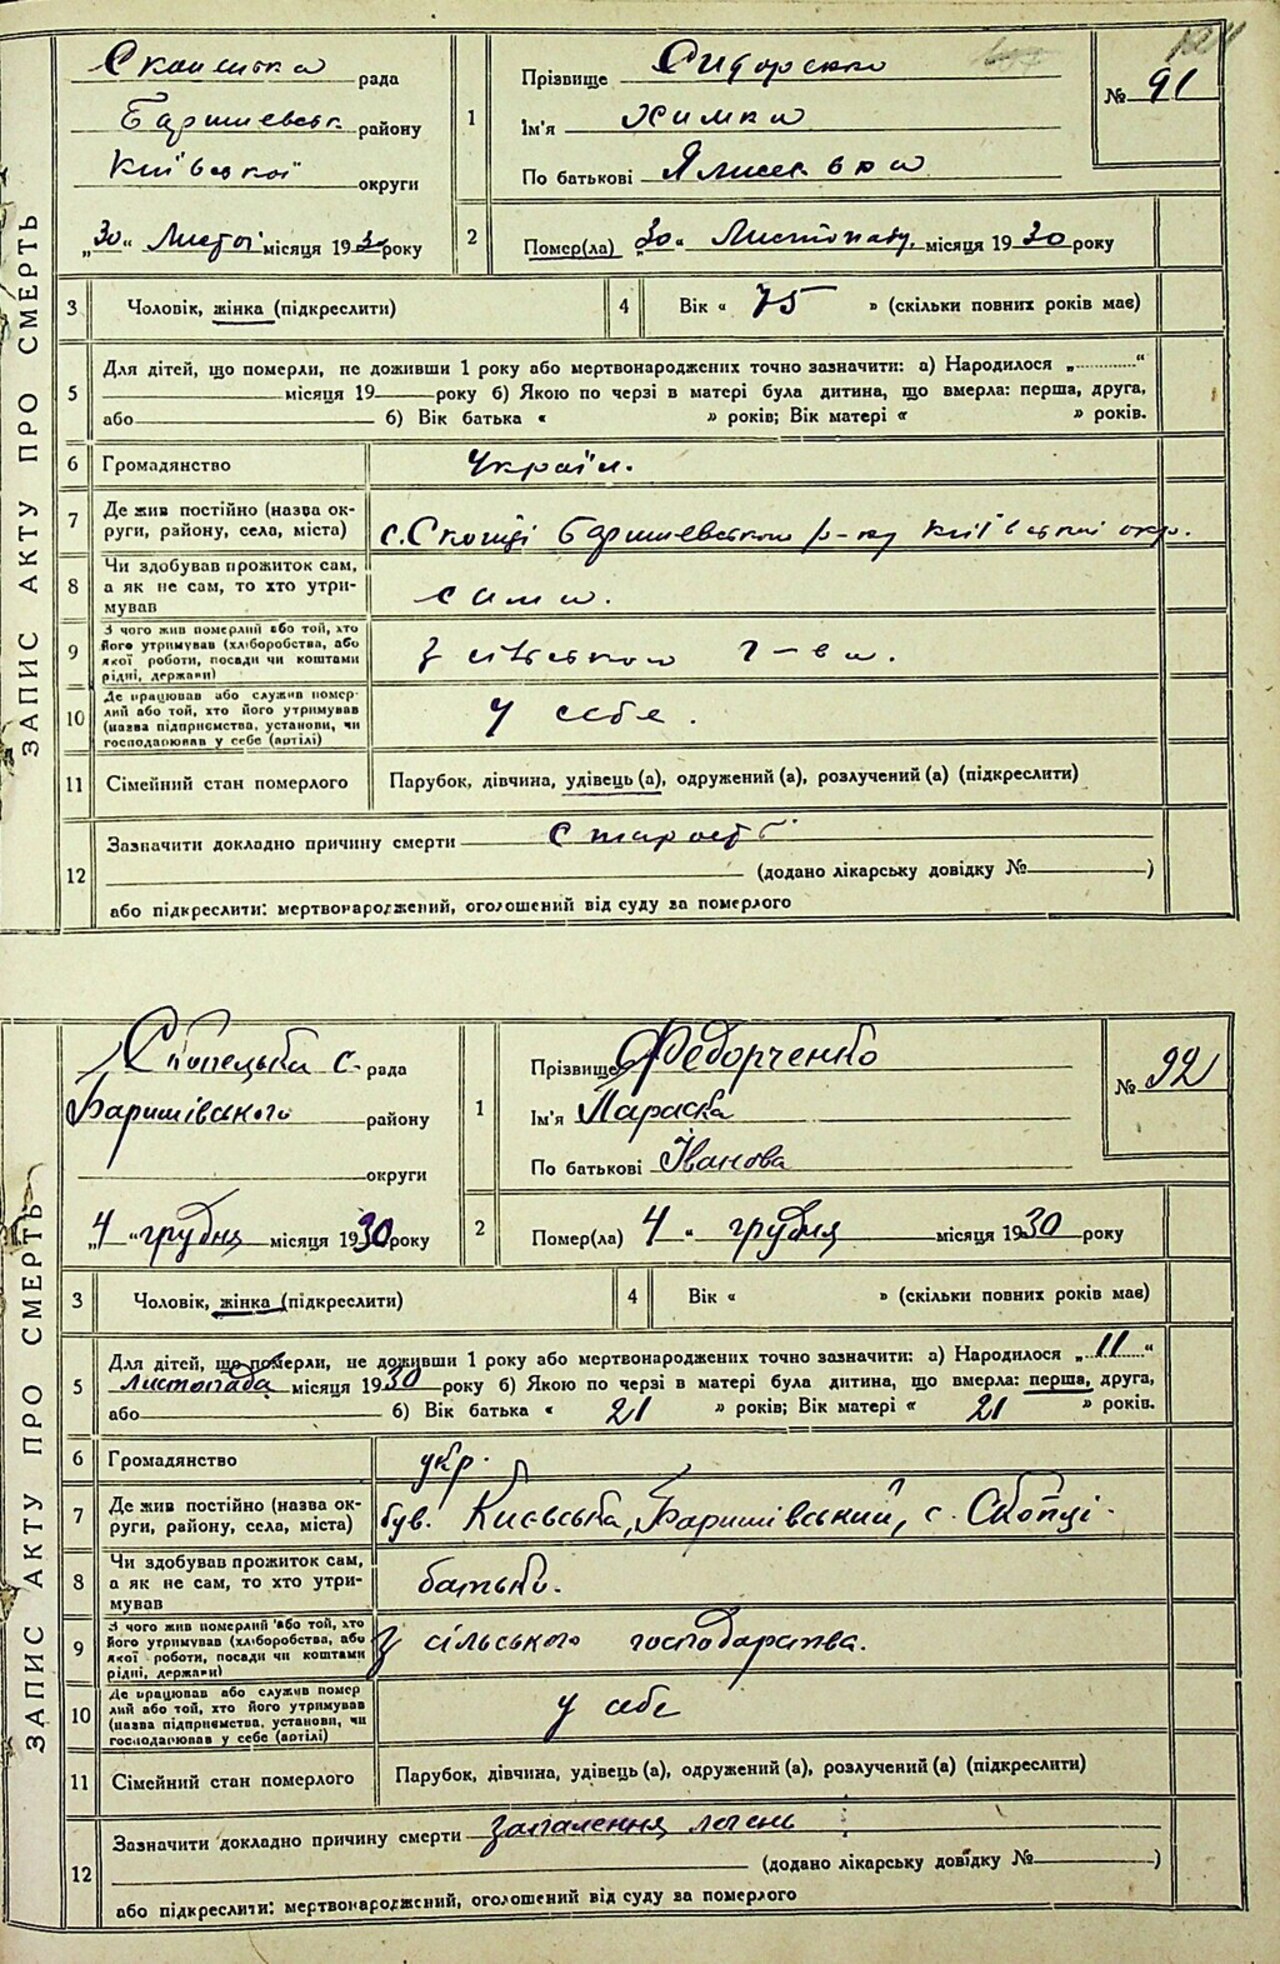 ЗАПИС АКТУ ПРО СМЕРТЬ
рада
Баришевськ. району
Київської округи
„30“ Листоп місяця 1930 року
1
Прізвище Сидоренко
Ім'я Химка
По батькові
№ 91
2
Помер(ла) „30“ Листопаду місяця 1930 року
3
Чоловік, жінка (підкреслити)
4
Вік « 75 » (скільки повних років має)
5
Для дітей, що померли, не доживши 1 року або мертвонароджених точно зазначити: а) Народилося „ “
місяця 19 року б) Якою по черзі в матері була дитина, що вмерла: перша, друга,
або б) Вік батька « » років; Вік матері « » років.
6
Громадянство
Україн.
7
Де жив постійно (назва ок-
руги, району, села, міста)
с. Скопці Баришевського р-ну Київської окр.
8
Чи здобував прожиток сам,
а як не сам, то хто утри-
мував
сама.
9
З чого жив померлий або той, хто
його утримував (хліборобства, або
якої роботи, посади чи коштами
рідні, держави)
З сільського г-ва.
10
Де працював або служив помер-
лий або той, хто його утримував
(назва підприємства, установи, чи
господарював у себе (артілі)
У себе.
11
Сімейний стан померлого
Парубок, дівчина, удівець (а), одружений (а), розлучений (а) (підкреслити)
12
Зазначити докладно причину смерти старость
(додано лікарську довідку № )
або підкреслити: мертвонароджений, оголошений від суду за померлого
ЗАПИС АКТУ ПРО СМЕРТЬ
Скопецька с. рада
Баришівського району
округи
„4“ грудня місяця 1930 року
1
Прізвище Федорченко
Ім'я Параска
По батькові Іванова
№ 92
2
Помер(ла) 4 “ грудня місяця 1930 року
3
Чоловік, жінка (підкреслити)
4
Вік « » (скільки повних років має)
5
Для дітей, що померли, не доживши 1 року або мертвонароджених точно зазначити: а) Народилося „11“
листопада місяця 1930 року б) Якою по черзі в матері була дитина, що вмерла: перша, друга,
або б) Вік батька « 21 » років; Вік матері « 21 » років.
6
Громадянство
укр.
7
Де жив постійно (назва ок-
руги, району, села, міста)
був. Києвська, Баришівський, с. Скопці.
8
Чи здобував прожиток сам,
а як не сам, то хто утри-
мував
батько.
9
З чого жив померлий або той, хто
його утримував (хліборобства, або
якої роботи, посади чи коштами
рідні, держави)
З сільського господарства.
10
Де працював або служив помер
лий або той, хто його утримував
(назва підприємства, установи, чи
господарював у себе (артілі)
у себе
11
Сімейний стан померлого
Парубок, дівчина, удівець (а), одружений (а), розлучений (а) (підкреслити)
12
Зазначити докладно причину смерти запалення легень
(додано лікарську довідку № )
або підкреслити: мертвонароджений, оголошений від суду за померлого